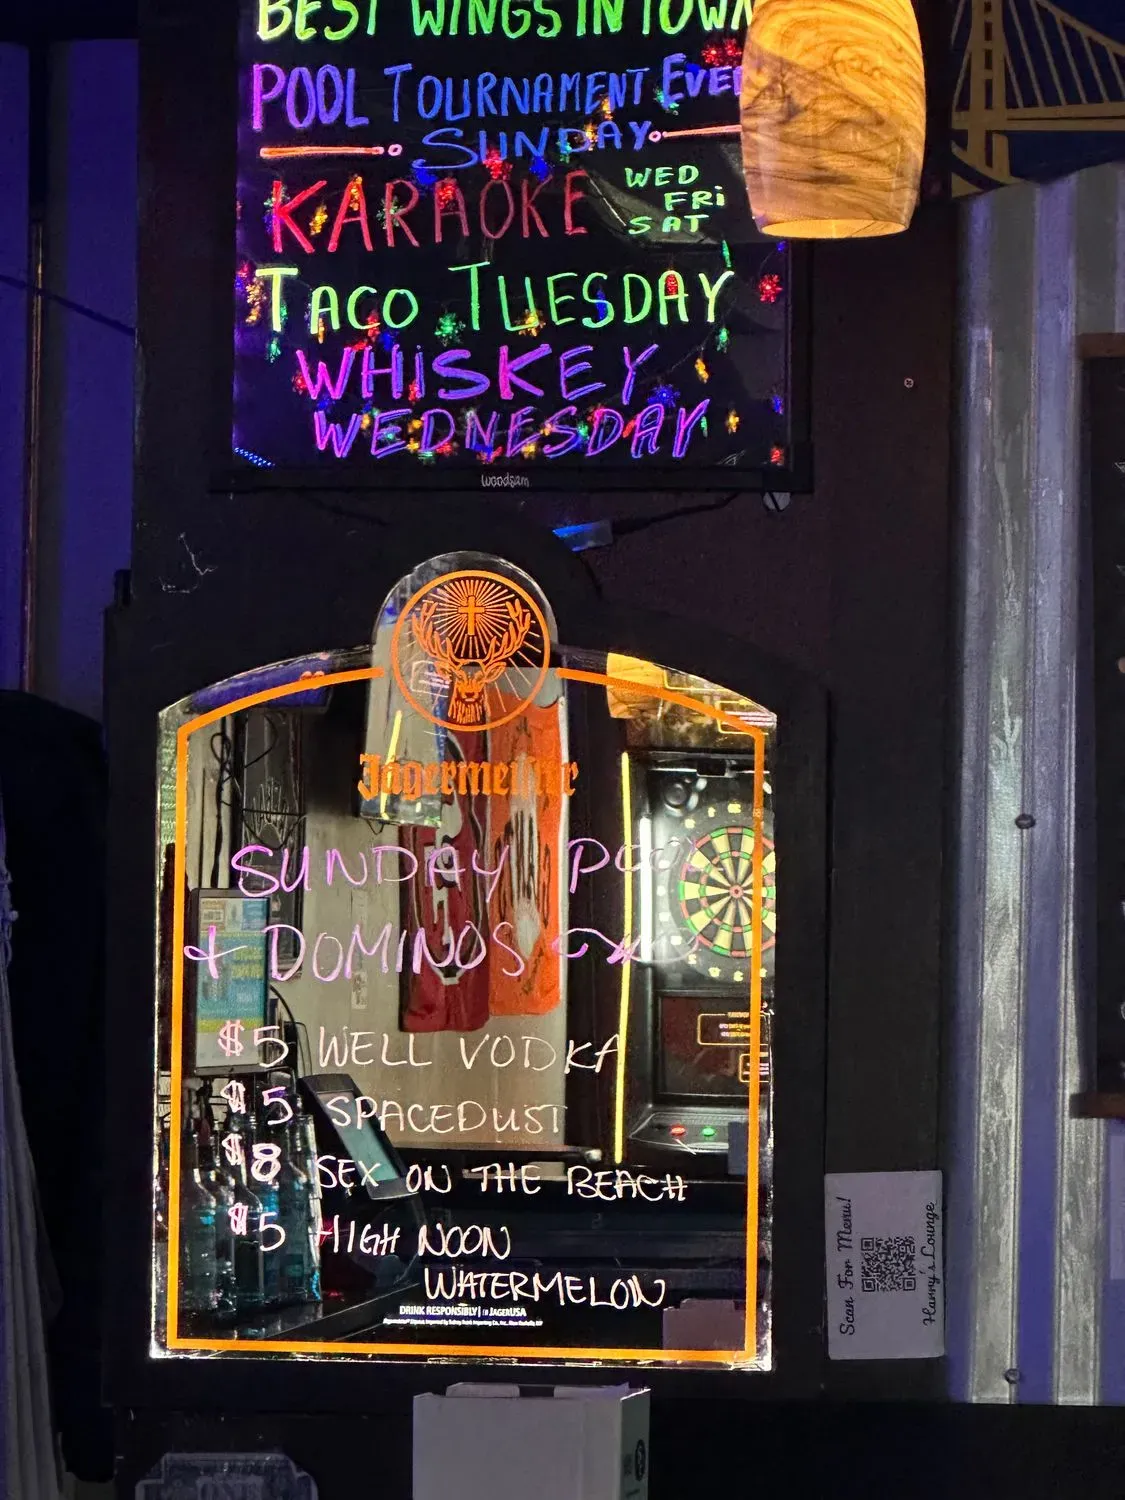 BEST WINGS IN TOWN
POOL TOURNAMENT EVE
SUNDAY
KARAOKE
WED
FRI
SAT
TACO TUESDAY
WHISKEY
WEDNESDAY
woodsam
Jägermeister
SUNDAY POOL
+ DOMINOS
$5 WELL VODKA
$5 SPACEDUST
$8 SEX ON THE BEACH
$5 HIGH NOON
WATERMELON
DRINK RESPONSIBLY JAGERUSA
Scan For Menu!
Hanny's Lounge